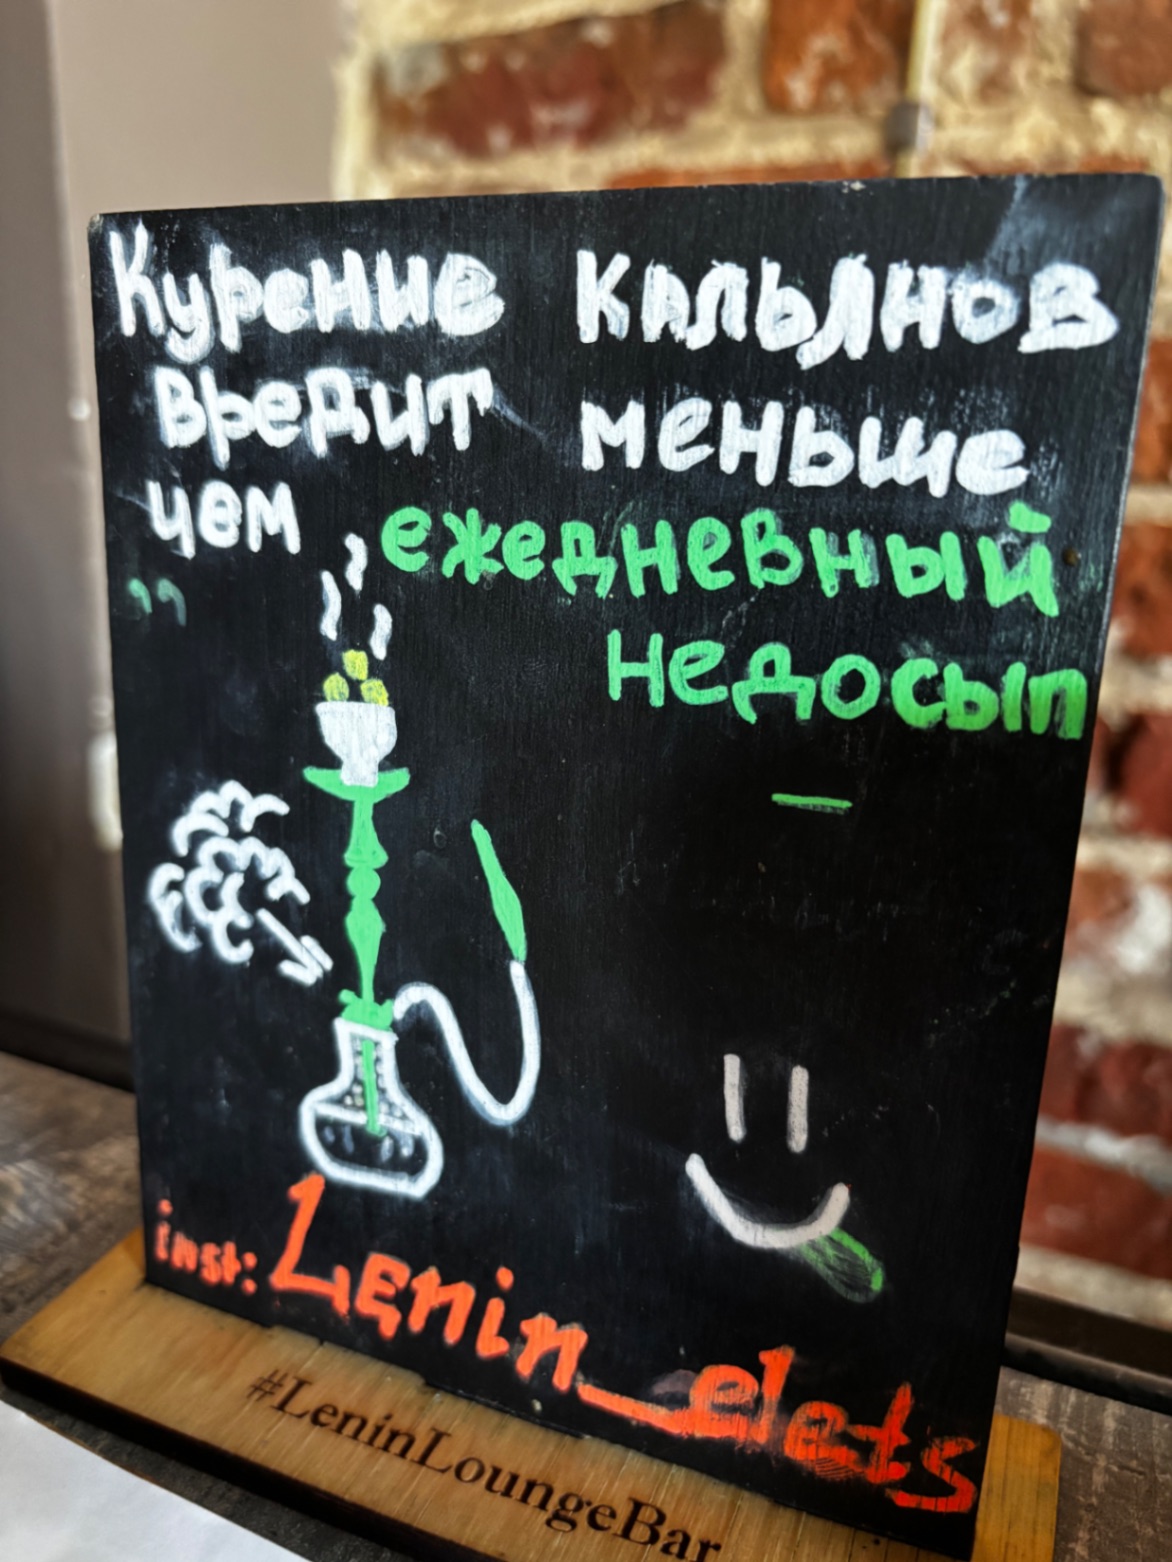 Курение кальянов
вредит меньше
чем ежедневный
недосып
inst: Lenin_elets
#LeninLoungeBar